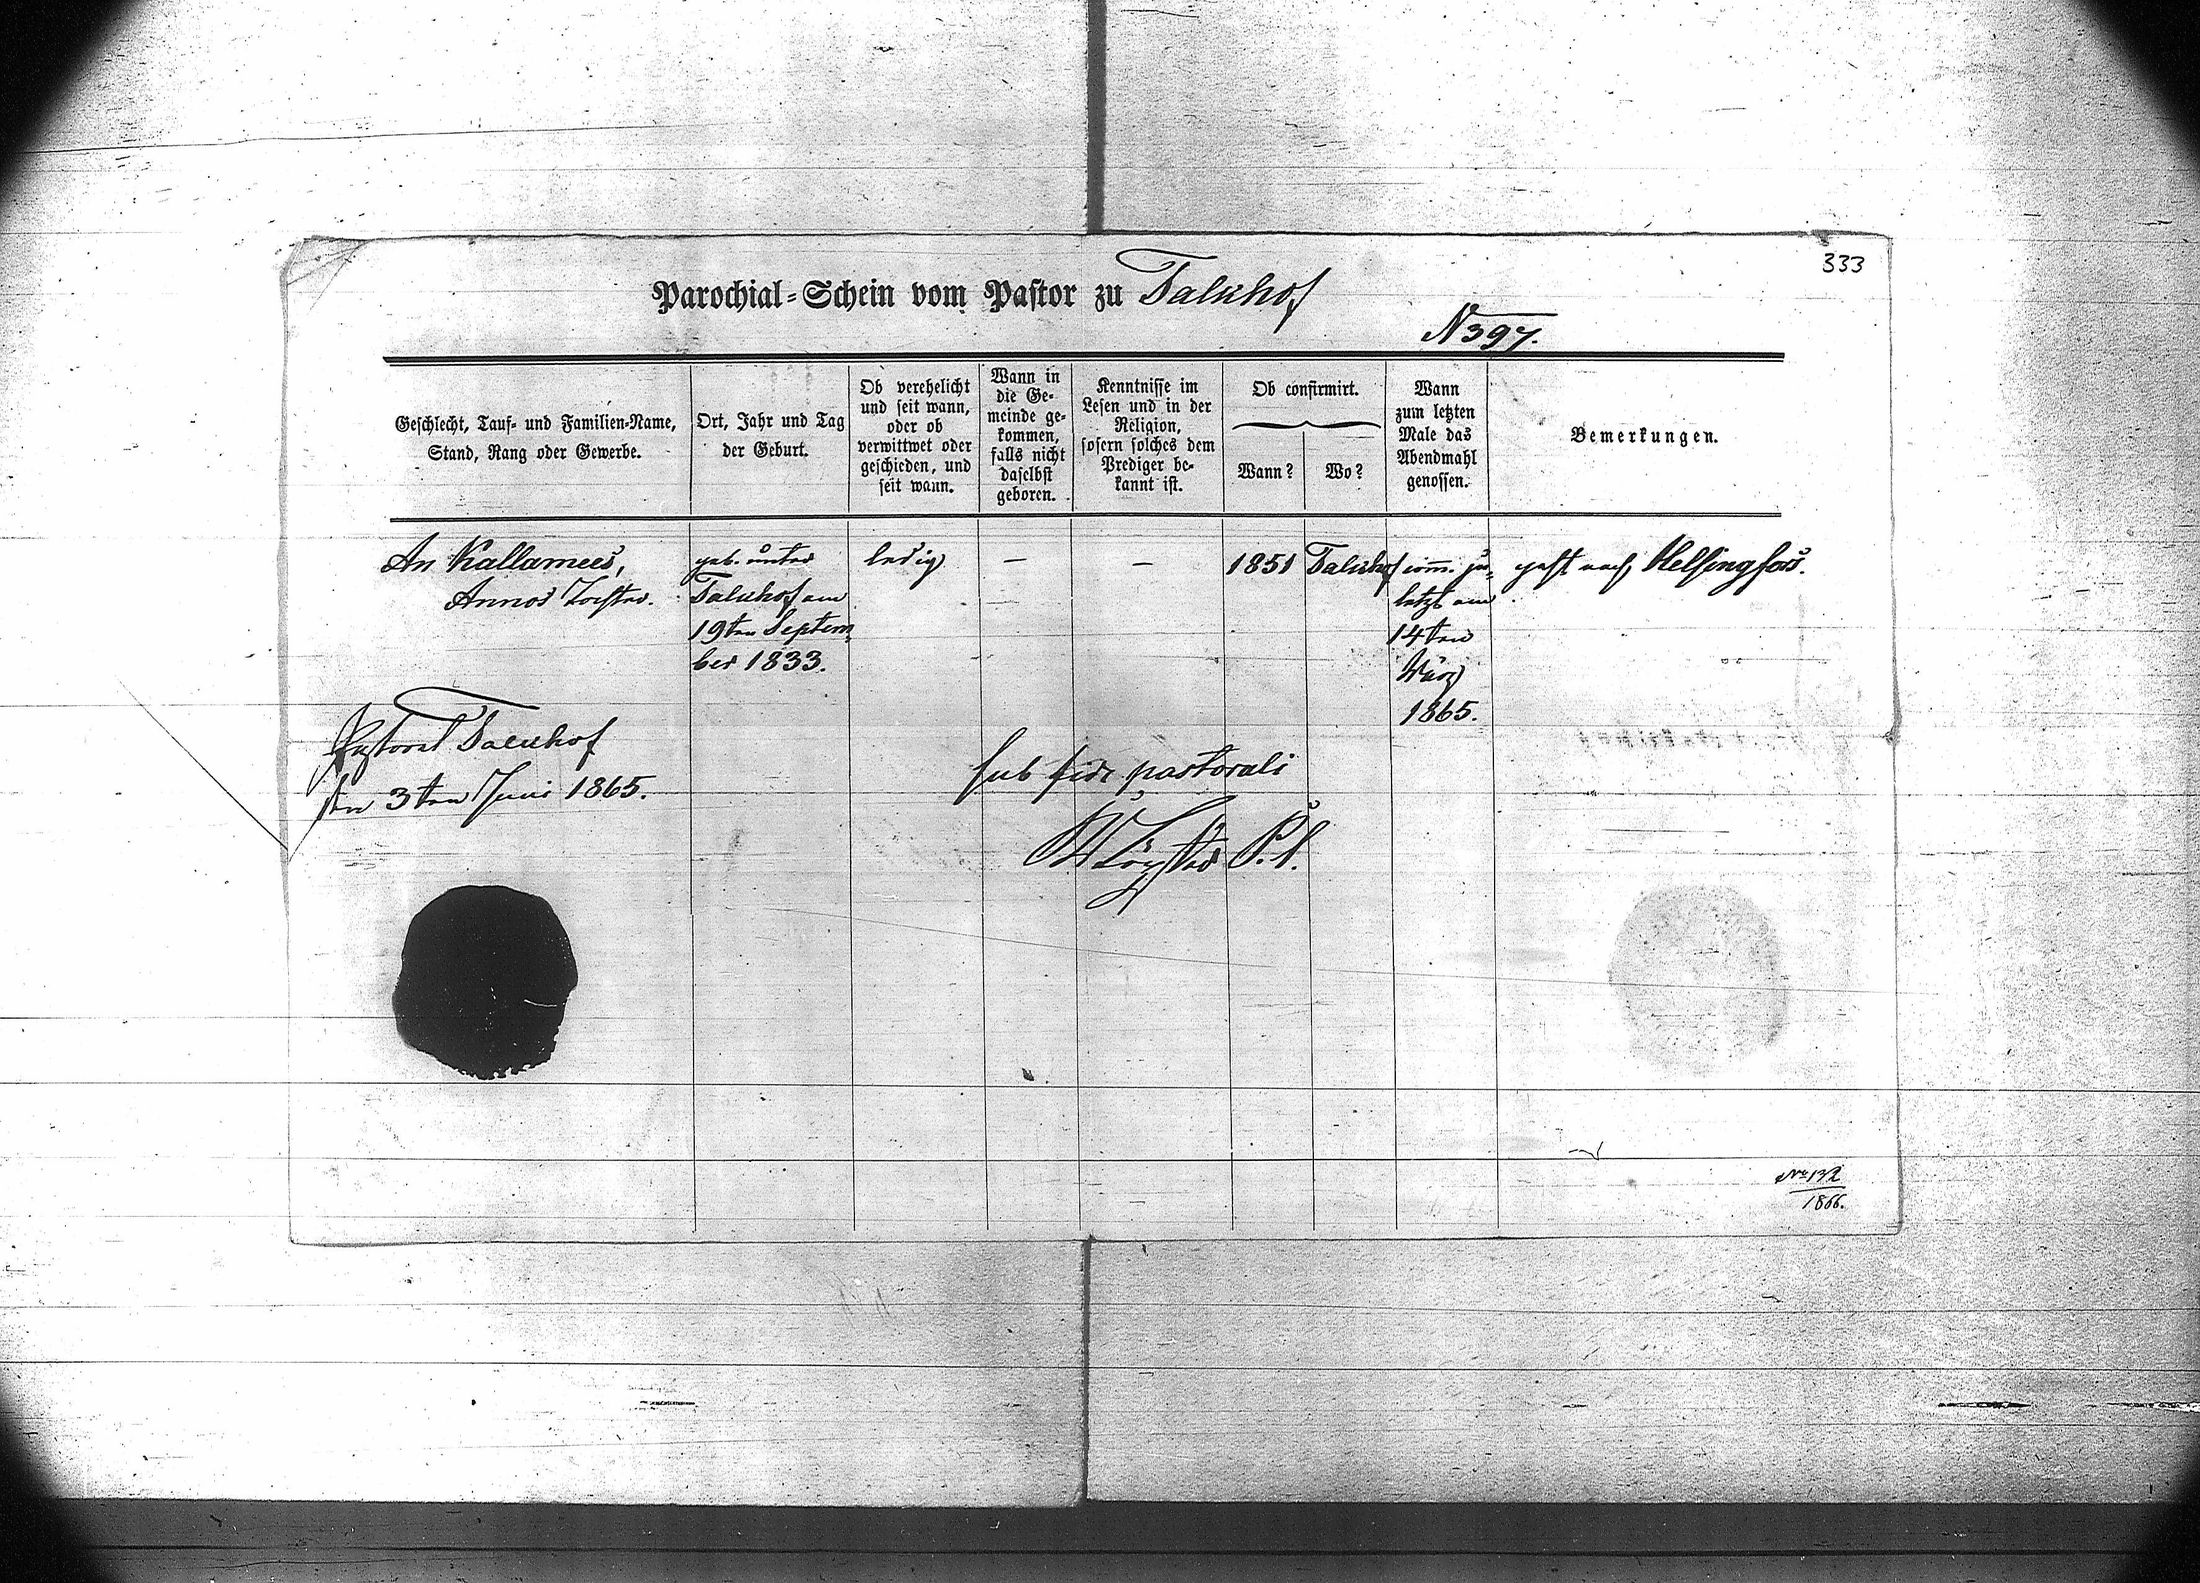 333
Parochial-Schein vom Pastor zu Talkhof
N 397.
Geschlecht, Tauf- und Familien-Name,
Stand, Rang oder Gewerbe.
Ort, Jahr und Tag
der Geburt.
Ob verehelicht
und seit wann,
oder ob
verwittwet oder
geschieden, und
seit wann.
Wann in
die Ge-
meinde ge-
kommen,
falls nicht
daselbst
geboren.
Kenntnisse im
Lesen und in der
Religion,
sofern solches dem
Prediger be-
kannt ist.
Ob confirmirt.
Wann?
Wo?
Wann
zum letzten
Male das
Abendmahl
genossen.
Bemerkungen.
An Kallamees,
Annos Tochter.
geb. unter
Talkhof am
19ten Septem-
ber 1833.
ledig
—
—
1851
Talkhof
comm. zu-
letzt am
14ten
März
1865.
geht nach Helsingfors.
Pastorat Talkhof
den 3ten Juni 1865.
sub fide pastorali
P. l.
No 132
1866.